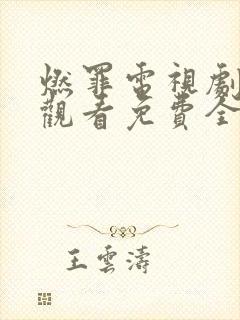 燃罪電視劇
觀看免費全
王雲濤